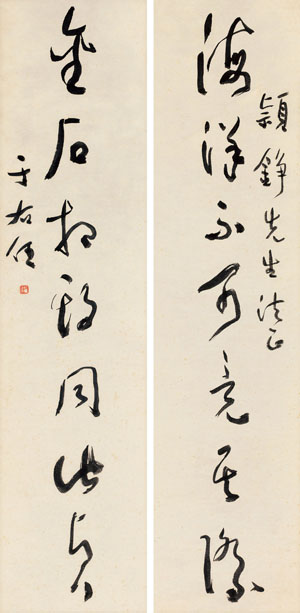 穎錚先生法正
海洋不可竟其際
金石相同此貞
于右任